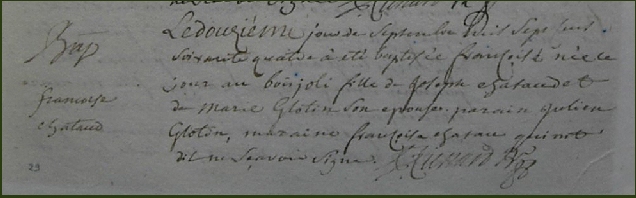 Bap
francoise
chataud
Ledouziéme jour de Septembre mil Sept cens
soixante quatre a été baptisée francoise née le
jour au boisjoli fille de Joseph chataud et
de marie Glotin Son epouse, parain Julien
Glotin, maraine francoise chatau qui not
dit ne Scavoir Signe
23